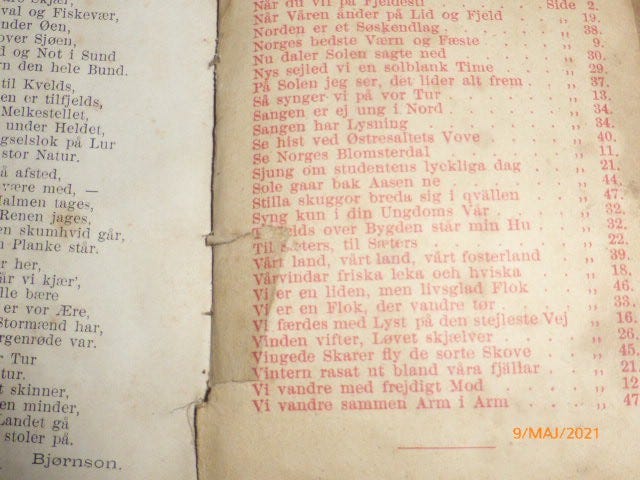 val og Fiskevær,
nder Øen,
over Sjøen,
d og Not i Sund
rn den hele Bund.
til Kvelds,
en er tilfjelds,
Melkestellet,
under Heldet,
gselslok på Lur
stor Natur.
å afsted,
være med, —
Halmen tages,
Renen jages,
en skumhvid går,
n Planke står.
r her,
år vi kjær',
lle bære
er vor Ære,
Stormænd har,
rgenrøde var.
r Tur
tur.
t skinner,
en minder,
Landet gå
stoler på.
Bjørnson.
Når du vil på Fjeldesti . Side 2.
Når Våren ånder på Lid og Fjeld . „ 19.
Norden er et Søskendlag . . . . „ 38.
Norges bedste Værn og Fæste . . „ 9.
Nu daler Solen sagte ned . . . „ 30.
Nys sejled vi en solblank Time . . „ 29.
På Solen jeg ser, det lider alt frem . „ 37.
Så synger vi på vor Tur . . . . „ 13.
Sangen er ej ung i Nord . . . . „ 34.
Sangen har Lysning . . . . . „ 34.
Se hist ved Østresaltets Vove . . „ 40.
Se Norges Blomsterdal . . . . „ 11.
Sjung om studentens lyckliga dag . „ 21.
Sole gaar bak Aasen ne . . . . „ 44.
Stilla skuggor breda sig i qvällen . „ 47.
Syng kun i din Ungdoms Vår . . . „ 32.
T elds over Bygden står min Hu . „ 32.
Til Sæters, til Sæters . . . . „ 22.
Vårt land, vårt land, vårt fosterland . „ 39.
Vårvindar friska leka och hviska . „ 18.
Vi er en liden, men livsglad Flok . „ 46.
Vi er en Flok, der vandre tør . . . „ 33.
Vi færdes med Lyst på den stejleste Vej „ 16.
Vinden vifter, Løvet skjælver . . „ 26.
Vingede Skarer fly de sorte Skove . „ 45.
Vintern rasat ut bland våra fjällar . „ 21.
Vi vandre med frejdigt Mod . . . „ 12
Vi vandre sammen Arm i Arm . . . „ 47
9/MAJ/2021